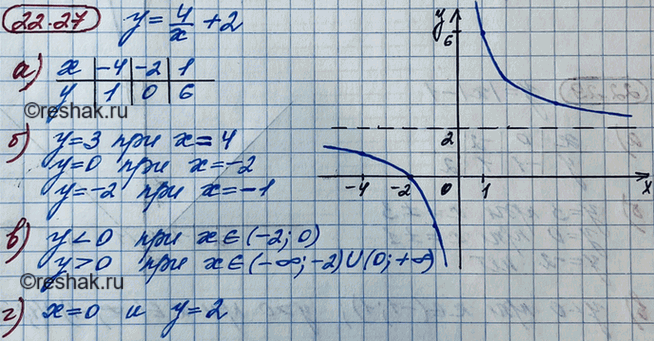 22.27 y = 4/x + 2
а) x | -4 | -2 | 1
y | 1 | 0 | 6
©reshak.ru
б) y=3 при x=4
y=0 при x=-2
y=-2 при x=-1
в) y<0 при x∈(-2; 0)
y>0 при x∈(-∞; -2)∪(0; +∞)
г) x=0 и y=2
y
6
2
-4 -2 0 1 x
©reshak.ru